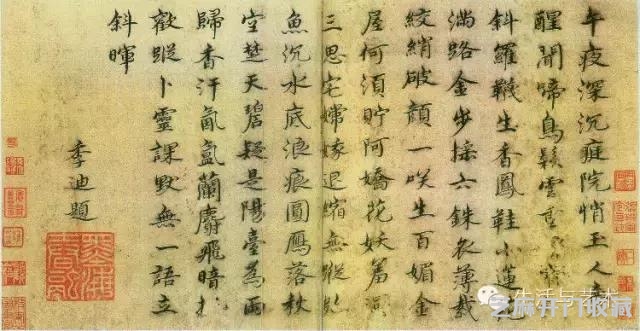 午夜深沉庭院悄玉人
醒聞啼鳥鬆雲
斜羅襪生香鳳鞋小蓮
滿路金步搖六銖衣薄裁
絞綃破顏一咲生百媚金
屋何須貯阿嬌花妖屬
三思宅嫦娥退縮無蹤
魚沉水底浪痕圓鴈落秋
空楚天碧疑是陽臺為雨
歸香汗氤氳蘭麝飛暗
歡蹤卜靈課默無一語立
斜暉
季迪題
生活与艺术
芝麻开门收藏